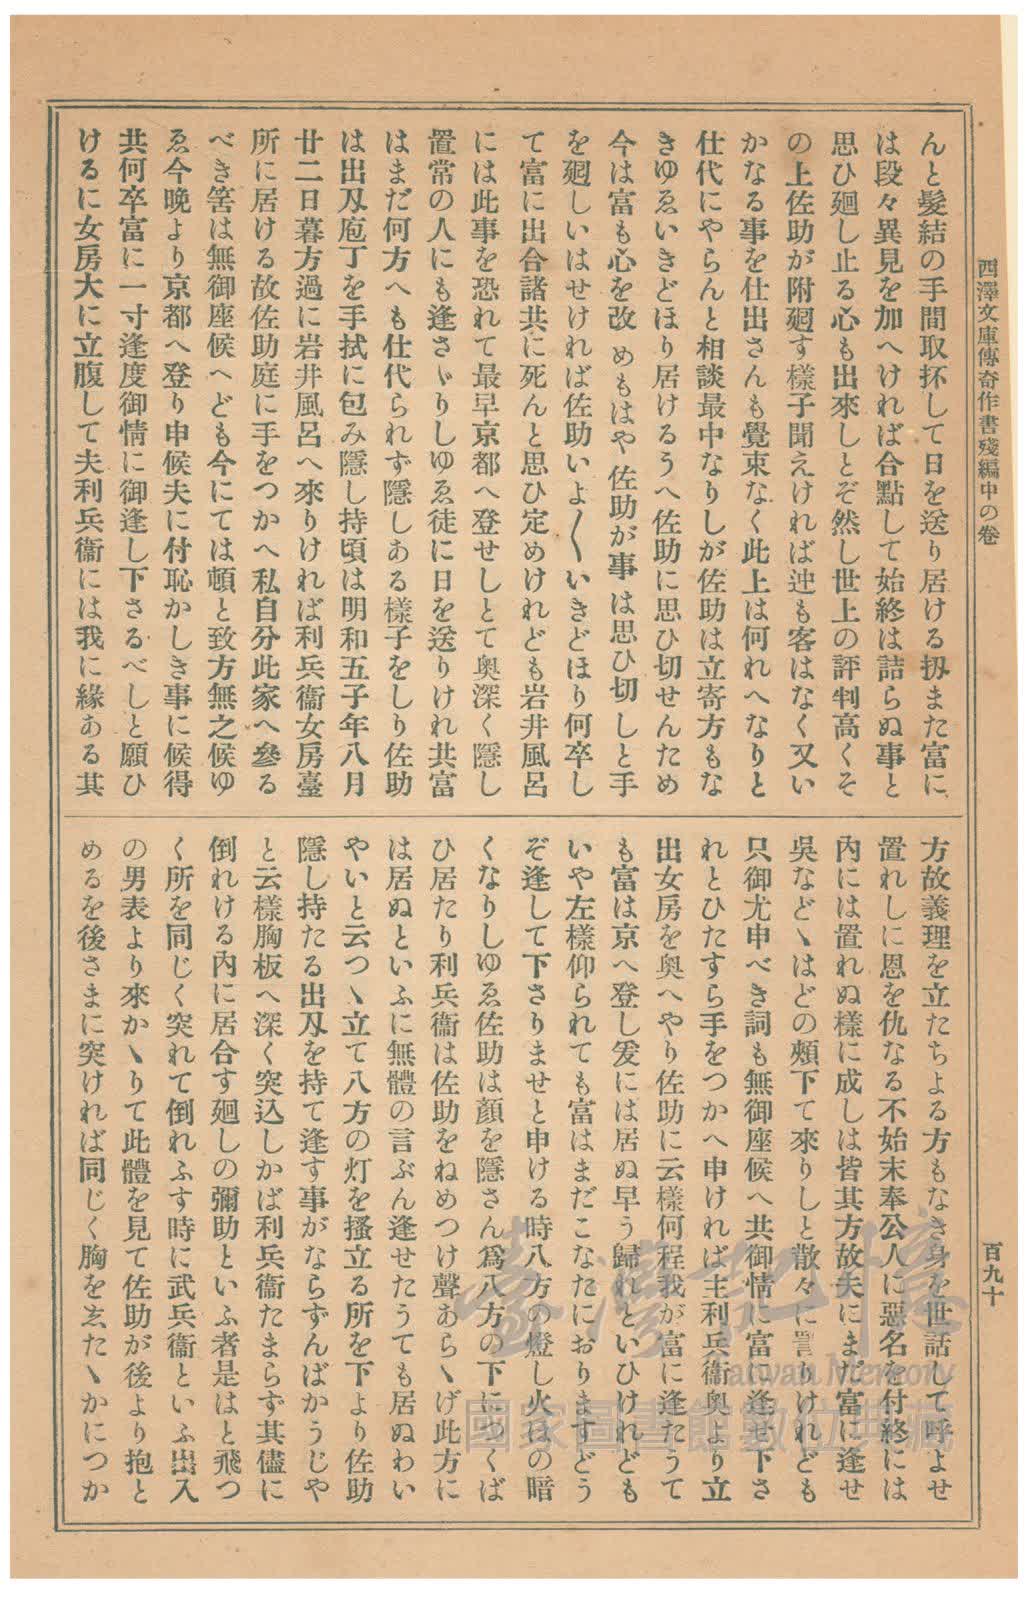 西澤文庫傳奇作書殘編中の卷
百九十
んと髮結の手間取抔して日を送り居ける扨また富に
は段々異見を加へければ合點して始終は詰らぬ事と
思ひ廻し止る心も出來しとぞ然し世上の評判高くそ
の上佐助が附廻す樣子聞えければ迚も客はなく又い
かなる事を仕出さんも覺束なく此上は何れへなりと
仕代にやらんと相談最中なりしが佐助は立寄方もな
きゆゑいきどほり居けるうへ佐助に思ひ切せんため
今は富も心を改めもはや佐助が事は思ひ切しと手
を廻しいはせければ佐助いよ〱いきどほり何卒し
て富に出合諸共に死んと思ひ定めけれども岩井風呂
には此事を恐れて最早京都へ登せしとて奧深く隱し
置常の人にも逢さゞりしゆゑ徒に日を送りけれ共富
はまだ何方へも仕代られず隱しある樣子をしり佐助
は出刄庖丁を手拭に包み隱し持頃は明和五子年八月
廿二日暮方過に岩井風呂へ來りければ利兵衞女房臺
所に居ける故佐助庭に手をつかへ私自分此家へ參る
べき筈は無御座候へども今にては頓と致方無之候ゆ
ゑ今晩より京都へ登り申候夫に付恥かしき事に候得
共何卒富に一寸逢度御情に御逢し下さるべしと願ひ
けるに女房大に立腹して夫利兵衞には我に緣ある其
方故義理を立たちよる方もなき身を世話して呼よせ
置れしに恩を仇なる不始末奉公人に惡名を付終には
內には置れぬ樣に成しは皆其方故夫にまだ富に逢せ
吳などゝはどの頰下て來りしと散々に詈りけれども
只御尤申べき詞も無御座候へ共御情に富に逢せ下さ
れとひたすら手をつかへ申ければ主利兵衞奧より立
出女房を奧へやり佐助に云樣何程我が富に逢たうて
も富は京へ登し爰には居ぬ早う歸れといひけれども
いや左樣仰られても富はまだこなたにおりますどう
ぞ逢して下さりませと申ける時八方の燈し火ほの暗
くなりしゆゑ佐助は顏を隱さん爲八方の下につくば
ひ居たり利兵衞は佐助をねめつけ聲あらゝげ此方に
は居ぬといふに無體の言ぶん逢せたうても居ぬわい
やいと云つゝ立て八方の灯を搔立る所を下より佐助
隱し持たる出刄を持て逢す事がならずんばかうじや
と云樣胸板へ深く突込しかば利兵衞たまらず其儘に
倒れける內に居合す廻しの彌助といふ者是はと飛つ
く所を同じく突れて倒れふす時に武兵衞といふ出入
の男表より來かゝりて此體を見て佐助が後より抱と
めるを後さまに突ければ同じく胸をゑたゝかにつか
臺灣記憶
Taiwan Memory
國家圖書館數位典藏